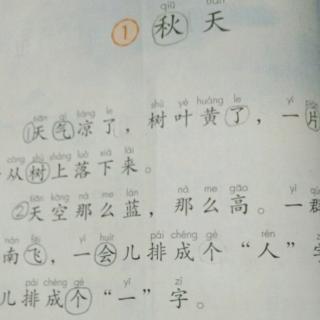 ① 秋天
①天气凉了，树叶黄了，一片
从树上落下来。
②天空那么蓝，那么高。一群
南飞，一会儿排成个“人”字
儿排成个“一”字。